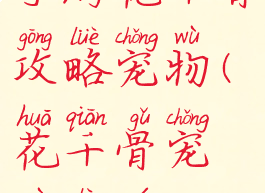 gōng lüè chǒng wù
攻略宠物(
huā qiān gǔ chǒng
花千骨宠